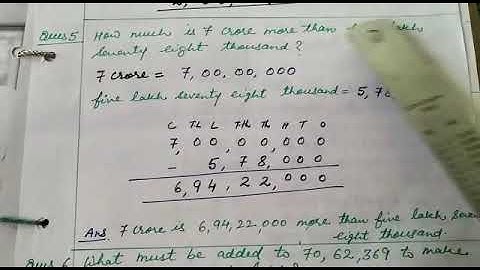 Ques 5 How much is 7 crore more than lakh
seventy eight thousand?
7 crore = 7,00,00,000
five lakh seventy eight thousand = 5,78
C TL L T.Th Th H T O
7,00,00,000
- 5,78,000
6,94,22,000
Ans. 7 crore is 6,94,22,000 more than five lakh
eight thousand.
Ques 6 What must be added to 70,62,369 to make